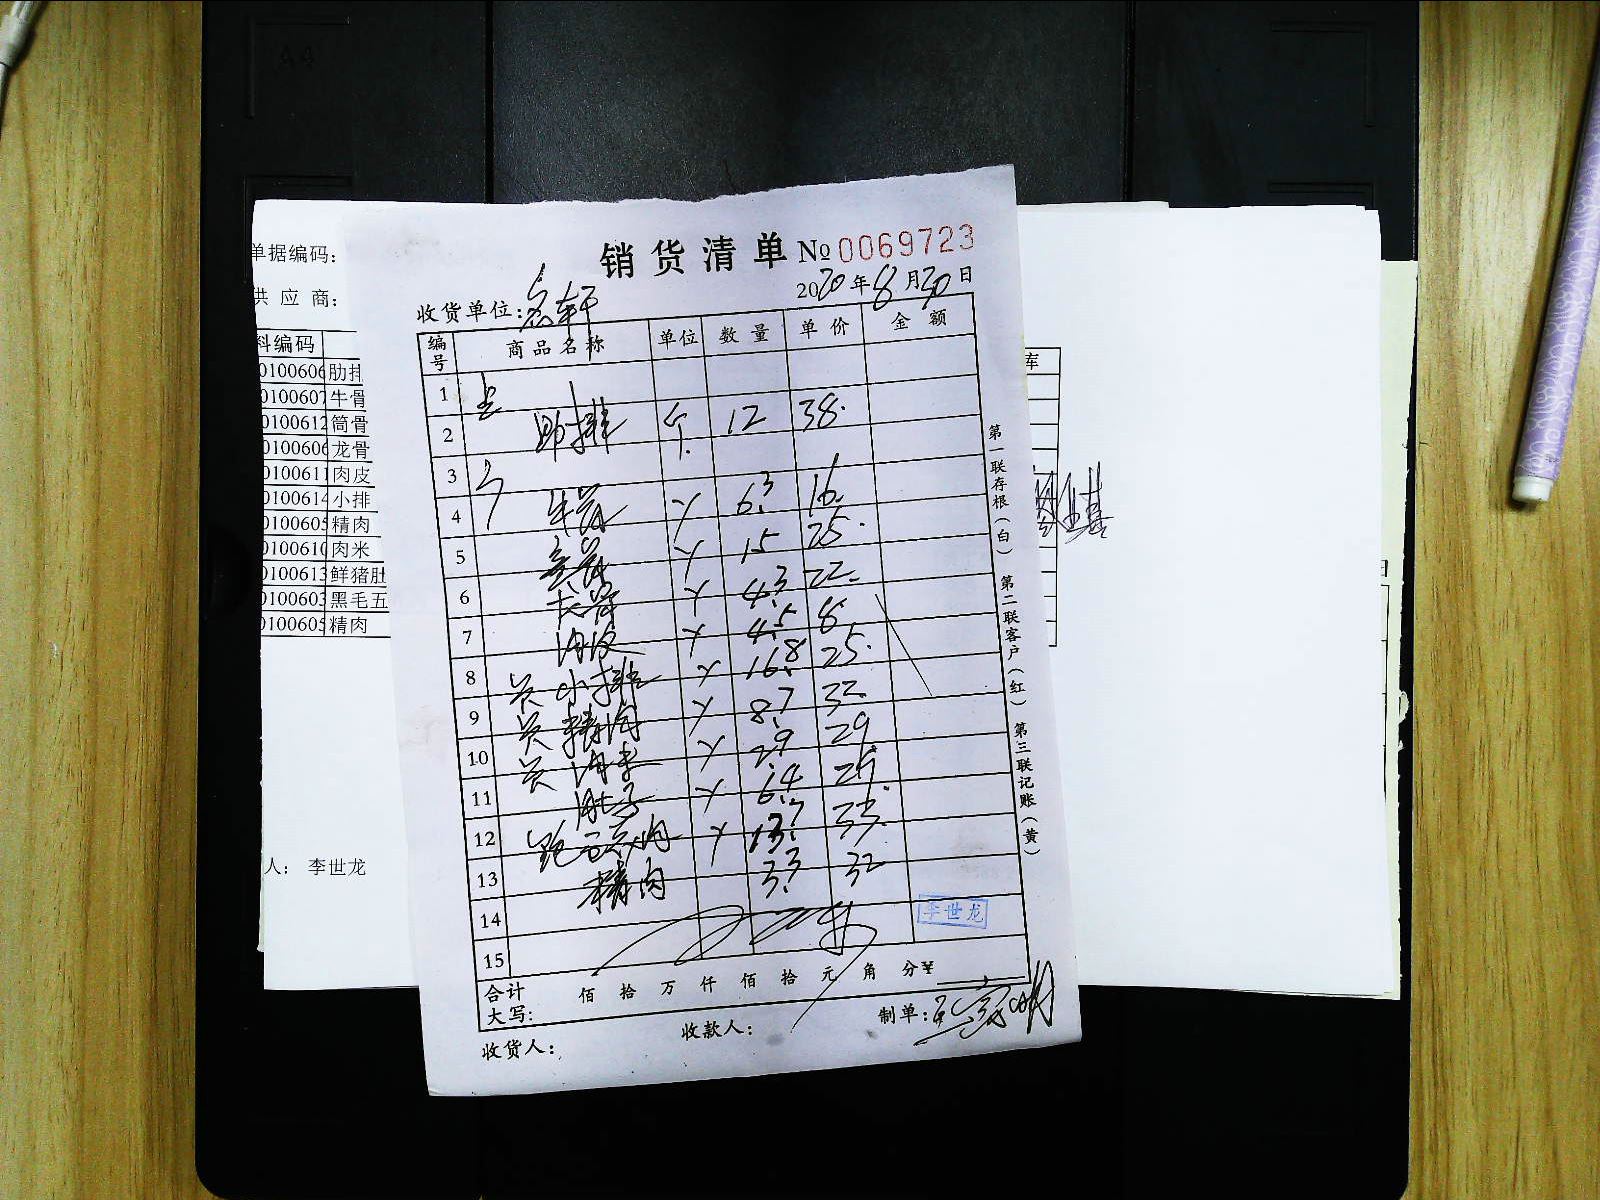 A4
销货清单 № 0069723
2020年8月30日
收货单位:
编号 商品名称 单位 数量 单价 金额
1
2 肋排 个 12 38.
3
4 牛骨 斤 6.3 16.
5 斤 15 25.
6 斤 4.3 22.
7 肉皮 斤 4.5 8.
8 小排 斤 16.8 25.
9 精肉 斤 8.7 32.
10 肉米 斤 2.9 29
11 肚子 斤 6.4 25.
12 斤 13.7 33.
13 精肉 3.3 32
14
15
李世龙
合计
大写: 佰 拾 万 仟 佰 拾 元 角 分 ¥
收货人: 收款人: 制单:
第一联存根(白) 第二联客户(红) 第三联记账(黄)
单据编码:
供应商:
料编码
0100606 肋排
0100607 牛骨
0100612 筒骨
0100606 龙骨
0100611 肉皮
0100614 小排
0100605 精肉
0100610 肉米
0100613 鲜猪肚
0100603 黑毛五
0100605 精肉
人: 李世龙
库